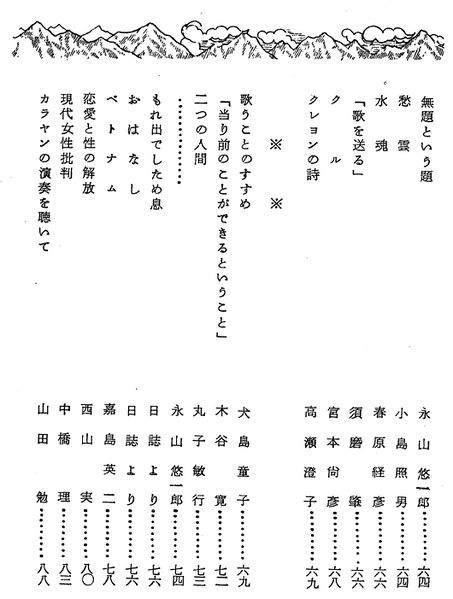 無題という題 永山悠一郎…………六四
愁雲 小島照男…………六四
水魂 春原経彦…………六六
「歌を送る」 須磨肇…………六六
クール 宮本尚彦…………六八
クレヨンの詩 高瀬澄子…………六九
※ ※
歌うことのすすめ 犬島童子…………六九
「当り前のことができるということ」 木谷寛…………七二
二つの人間 丸子敏行…………七三
………… 永山悠一郎…………七四
もれ出でしため息 日誌より…………七六
おはなし 日誌より…………七六
ベトナム 嘉島英二…………七八
恋愛と性の解放 西山実…………八〇
現代女性批判 中橋理…………八三
カラヤンの演奏を聴いて 山田勉…………八八